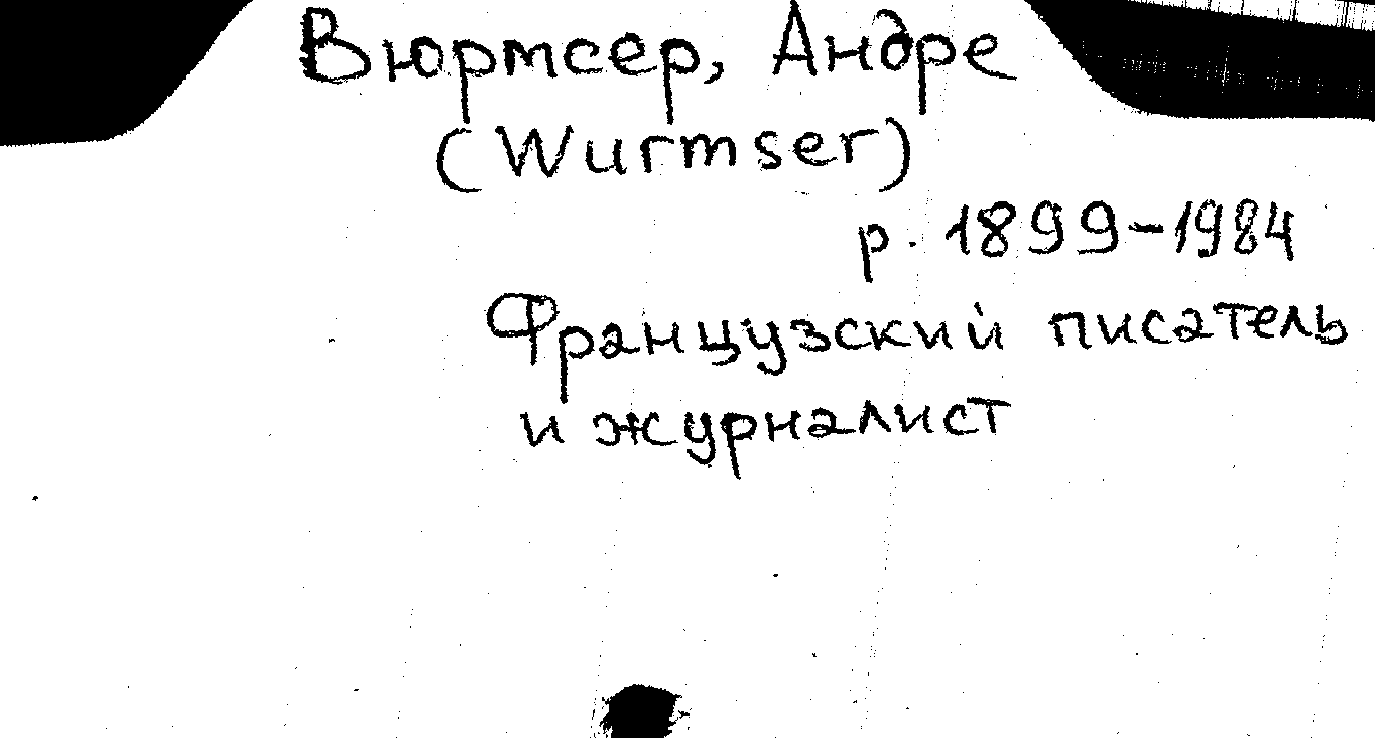 Вюрмсер, Андре
(Wurmser)
р. 1899-1984
Французский писатель
и журналист